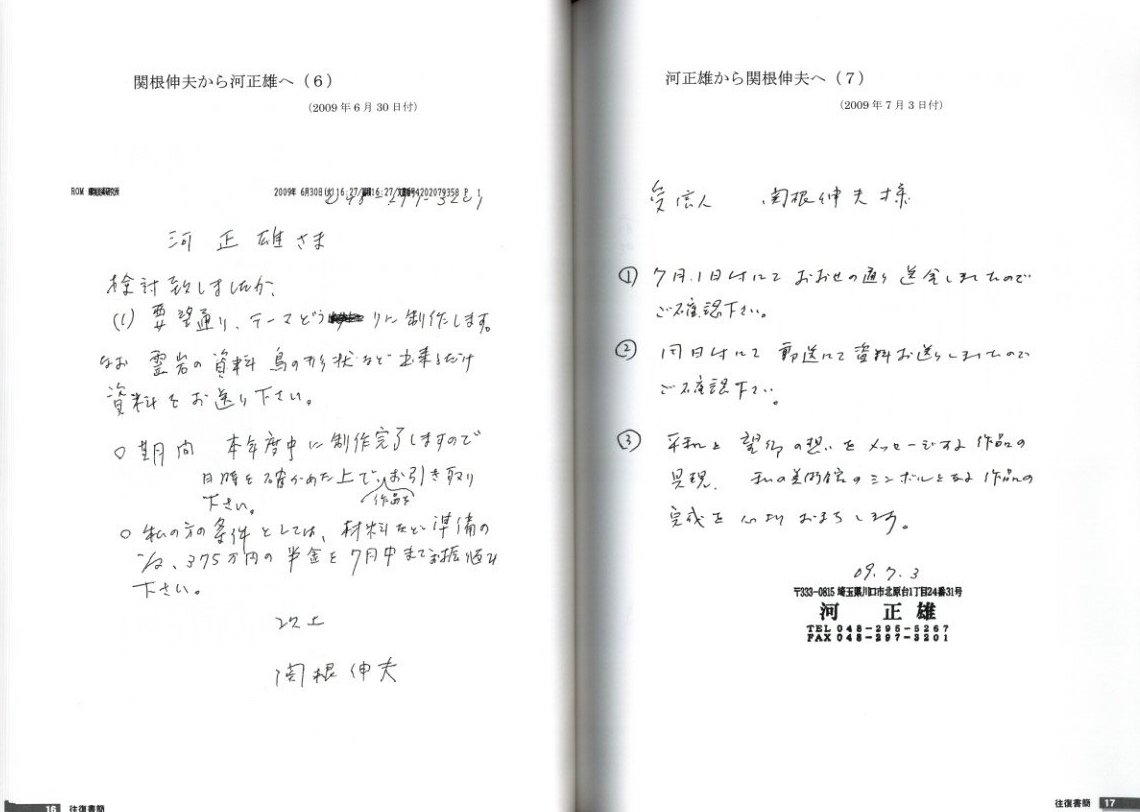 関根伸夫から河正雄へ（6）
（2009年6月30日付）
2009年 6月30日(火)16:27/ 16:27/ 4202079358 P 1
048-297-3201
河正雄さま
検討致しましたが、
(1) 要望通り、テーマどうりに制作します。
なお 霊岩の資料 鳥の形状など出来るだけ
資料をお送り下さい。
○ 期間 本年度中に制作完了しますので
日時を確かめた上で、お引き取り
作品を
下さい。
○ 私の方の条件としては、材料など準備の
為、375万円の半金を7月中までお振込み
下さい。
以上
関根伸夫
16 往復書簡
河正雄から関根伸夫へ（7）
（2009年7月3日付）
受信人 関根伸夫様
① 7月1日付にて おおせの通り送金しましたので
ご確認下さい。
② 同日付にて 郵送にて資料お送りしましたので
ご確認下さい。
③ 平和と望郷の想いをメッセージする作品の
具現、私の美術館のシンボルとなる作品の
完成を心よりおまちします。
09.7.3
〒333-0815 埼玉県川口市北原台1丁目24番31号
河 正雄
TEL 048-295-5267
FAX 048-297-3201
往復書簡 17